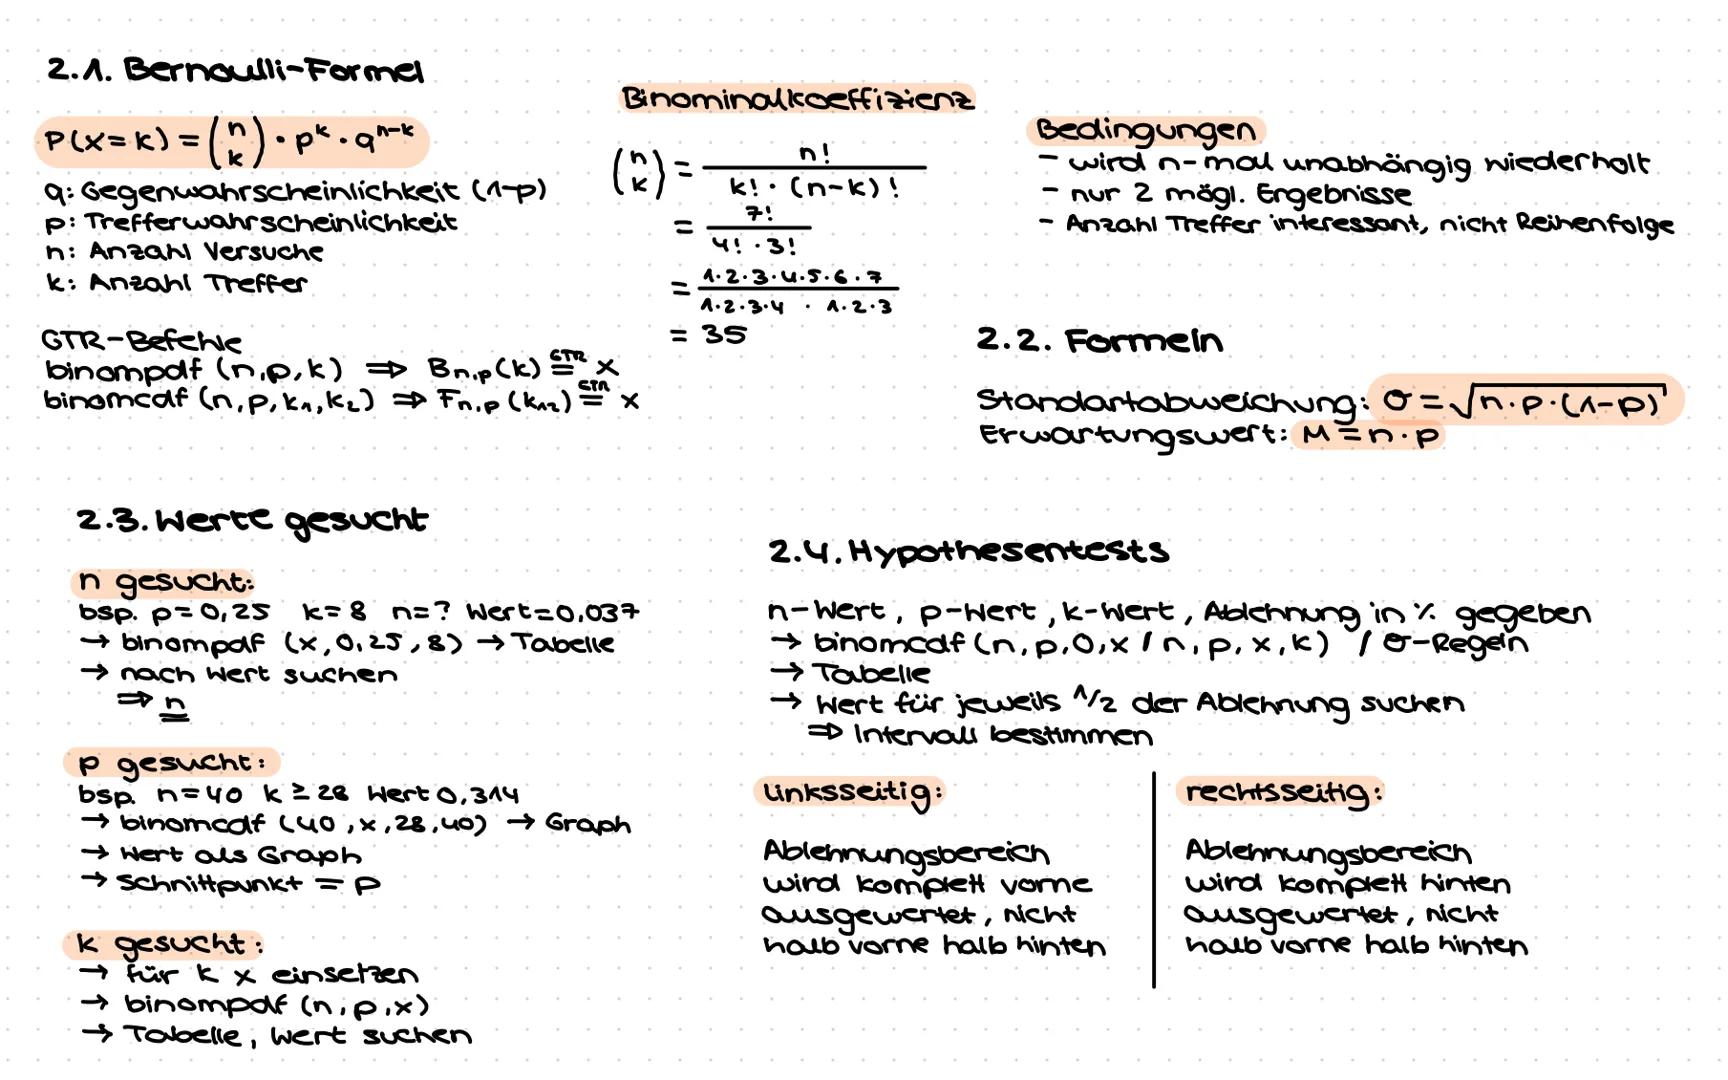 2.1. Bernoulli-Formel
P(x=k) = (n k) · p^k · q^n-k
q: Gegenwahrscheinlichkeit (1-p)
p: Trefferwahrscheinlichkeit
n: Anzahl Versuche
k: Anzahl Treffer
GTR-Befehle
binompdf (n,p,k) ⇒ B n,p (k) GTR= x
binomcdf (n,p,k₁,k₂) ⇒ F n,p (k₁₂) GTR= x
Binominalkoeffizienz
(n k) = n! / k! · (n-k)!
= 7! / 4! · 3!
= 1·2·3·4·5·6·7 / 1·2·3·4 · 1·2·3
= 35
Bedingungen
- wird n-mal unabhängig wiederholt
- nur 2 mögl. Ergebnisse
- Anzahl Treffer interessant, nicht Reihenfolge
2.2. Formeln
Standartabweichung: σ = √n·p·(1-p)
Erwartungswert: M = n·p
2.3. Werte gesucht
n gesucht:
bsp. p=0,25 k=8 n=? Wert=0,037
→ binompdf (x,0,25,8) → Tabelle
→ nach Wert suchen
⇒ n
p gesucht:
bsp. n=40 k≥28 Wert 0,314
→ binomcdf (40,x,28,40) → Graph
→ Wert als Graph
→ Schnittpunkt = p
k gesucht:
→ für k x einsetzen
→ binompdf (n,p,x)
→ Tabelle, Wert suchen
2.4. Hypothesentests
n-Wert, p-Wert, k-Wert, Ablehnung in % gegeben
→ binomcdf (n,p,0,x / n,p,x,k) / σ-Regeln
→ Tabelle
→ Wert für jeweils 1/2 der Ablehnung suchen
⇒ Intervall bestimmen
linksseitig:
Ablehnungsbereich
wird komplett vorne
ausgewertet, nicht
halb vorne halb hinten
rechtsseitig:
Ablehnungsbereich
wird komplett hinten
ausgewertet, nicht
halb vorne halb hinten